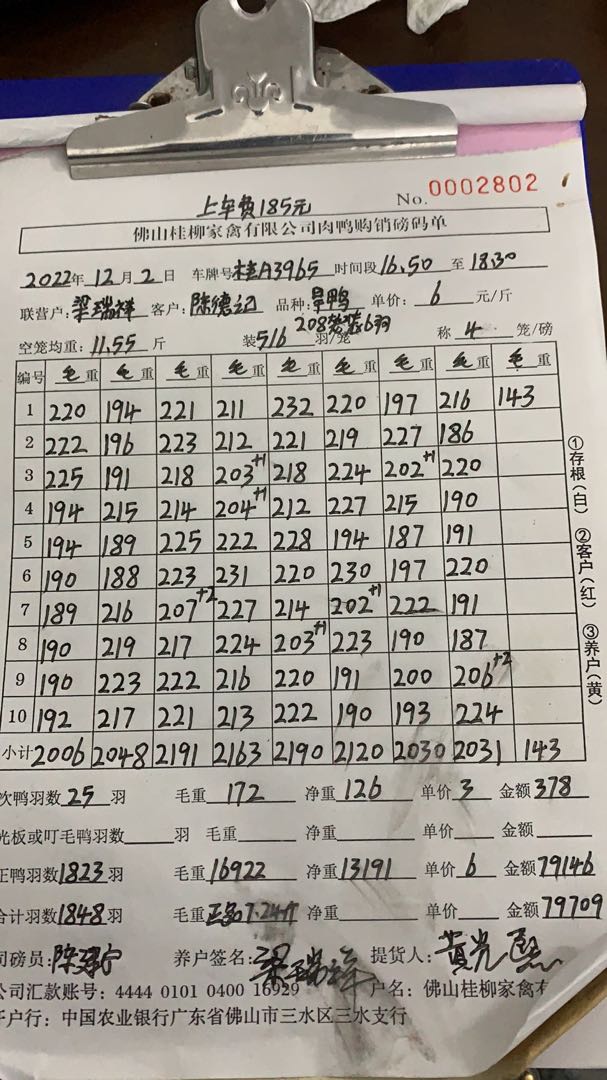 上车费185元 No. 0002802
佛山桂柳家禽有限公司肉鸭购销磅码单
2022年12月2日 车牌号桂A3965 时间段16.50至18.30
联营户:梁瑞祥 客户:陈德记 品种:旱鸭 单价:6元/斤
208袋装6羽
空笼均重:11.55斤 装5/6羽/笼 称4笼/磅
编号 毛重 毛重 毛重 毛重 毛重 毛重 毛重 毛重 毛重
1 220 194 221 211 232 220 197 216 143
2 222 196 223 212 221 219 227 186
3 225 191 218 203+1 218 224 202+1 220
4 194 215 214 204+1 212 227 215 190
5 194 189 225 222 228 194 187 191
6 190 188 223 231 220 230 197 220
7 189 216 207+2 227 214 202+1 222 191
8 190 219 217 224 203+1 223 190 187
9 190 223 222 216 220 191 200 206+2
10 192 217 221 213 222 190 193 224
小计 2006 2048 2191 2163 2190 2120 2030 2031 143
①存根(白) ②客户(红) ③养户(黄)
次鸭羽数25羽 毛重172 净重126 单价3 金额378
光板或叮毛鸭羽数 羽 毛重 净重 单价 金额
正鸭羽数1823羽 毛重16922 净重13191 单价6 金额79146
合计羽数1848羽 毛重正品7.24斤 净重 单价 金额79709
司磅员:陈建宁 养户签名:梁瑞祥 提货人:黄光
公司汇款账号:4444 0101 0400 16929 户名:佛山桂柳家禽有
开户行:中国农业银行广东省佛山市三水区三水支行